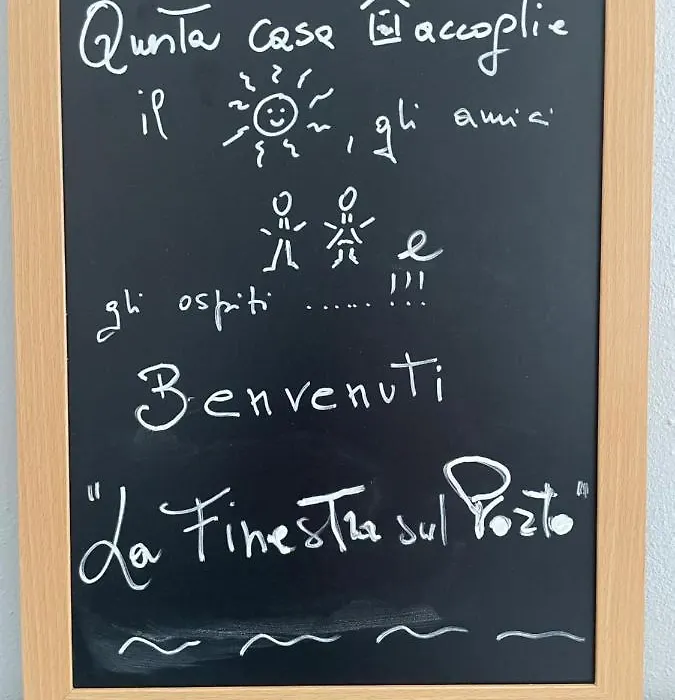 Questa casa accoglie
il , gli amici
e
gli ospiti ...... !!!
Benvenuti
"La Finestra sul Porto"